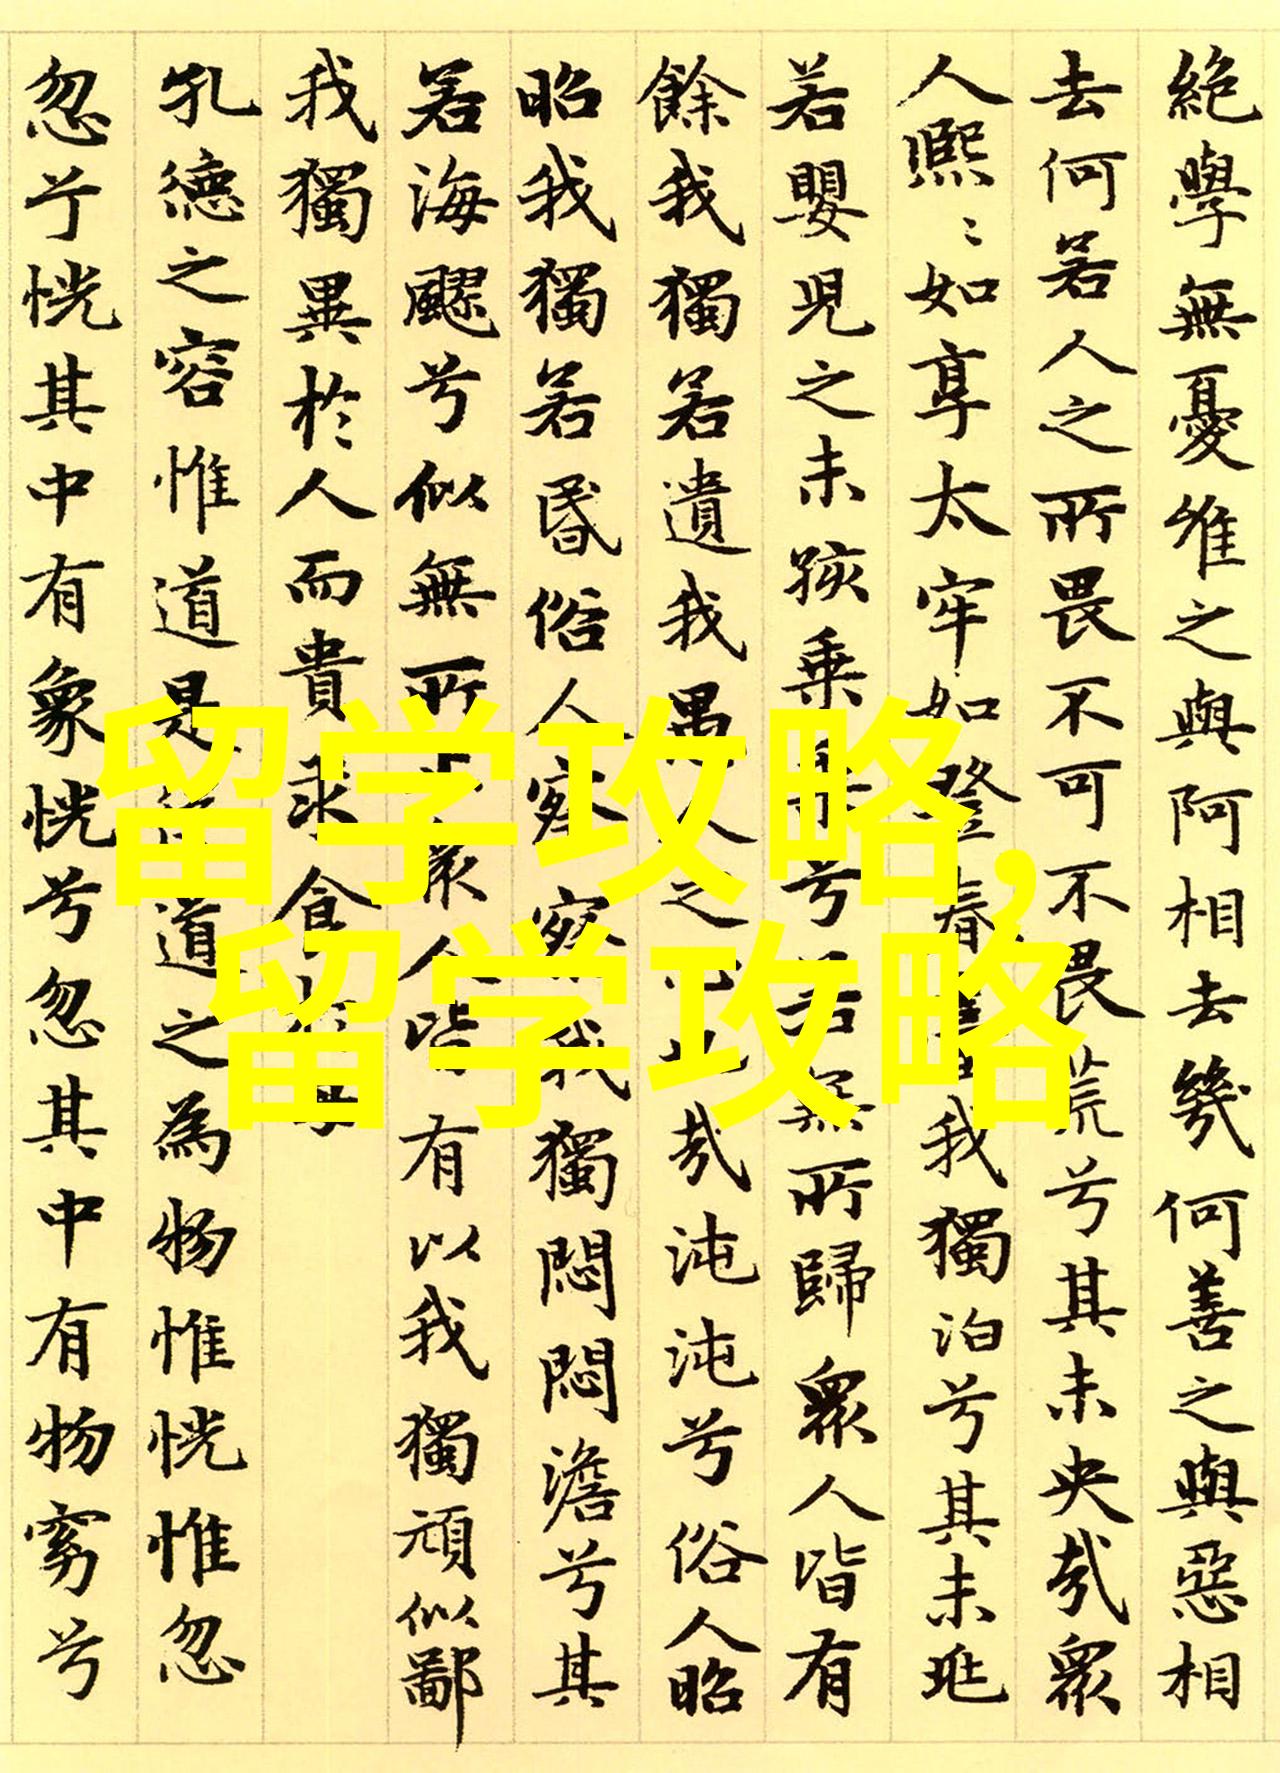 絶學無憂唯之與阿相去幾何善之與惡相
去何若人之所畏不可不畏荒兮其未央哉眾
人熙〻如享太牢如登春臺我獨泊兮其未兆
若嬰兒之未孩乘乘兮若無所歸眾人皆有
餘我獨若遺我愚人之心也哉沌沌兮俗人昭
昭我獨若昏俗人察察我獨悶悶澹兮其
若海飂兮似無所眾人皆有以我獨頑似鄙
我獨異於人而貴求食於母
孔德之容惟道是道之為物惟恍惟忽
忽兮恍其中有象恍兮忽其中有物窈兮
留学攻略,
留学攻略